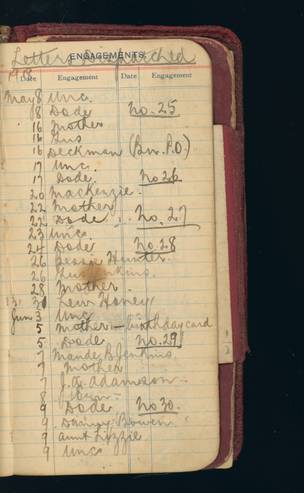 Letters Dispatched
ENGAGEMENTS.
1918
Date Engagement Date Engagement
May 8 Unc.
8 Dode No. 25
16 Mother
16
16 Deckman (Bn. P.O.)
17 Unc.
17 Dode No 26
20 MacKenzie
22 Mother
22 Dode No. 27
23 Unc
24 Dode No. 28
26 Hunter.
26
28 Mother.
31 Lew Honey
Jun 3 Unc
5 Mother — birthday card
5 Dode No. 29
7 Maude B. Jenkins.
7 Mother
7 J. G. Adamson
8
9 Dode No 30.
9 Bowen
9 Aunt Lizzie
9 Unc